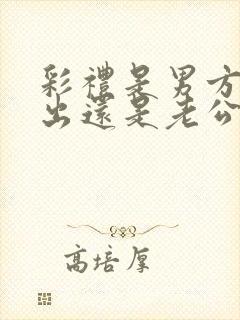 彩禮是男方
出還是老公
高培厚